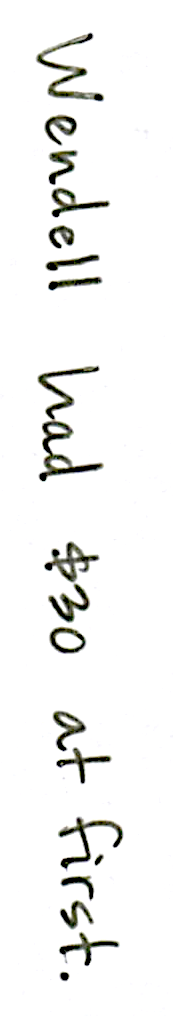 Wendell had $30 at first.